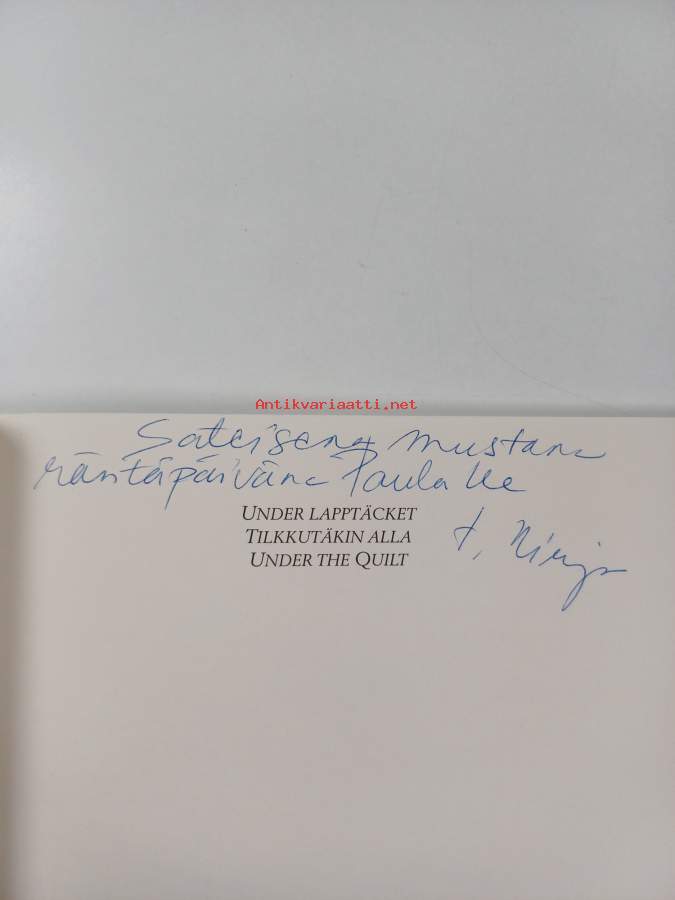 Antikvariaatti.net
Sateisena mustana
räntäpäivänä Paulalle
UNDER LAPPTÄCKET
TILKKUTÄKIN ALLA
UNDER THE QUILT
t,